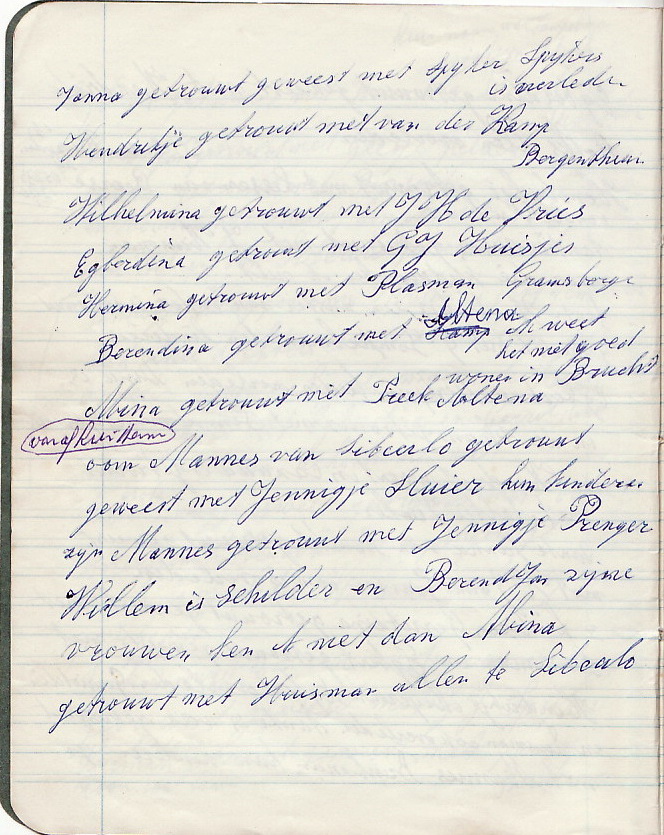 Janna getrouwt geweest met Spyker Spykers
is overleden
Hendrikje getrouwt met van der Kamp
Bergentheim
Wilhelmina getrouwt met J H de Vries
Egberdina getrouwt met G J Huisjes
Hermina getrouwt met Plasman Gramsberge
Berendina getrouwt met Altena k weet
het niet goed
wonen in Brucht
Mina getrouwt met Altena
oom Mannes van Sibculo getrouwt
geweest met Jennigje Sluier hun kinderen
zijn Mannes getrouwt met Jennigje Prenger
Willem is schilder en Berend Jan zijne
vrouwen ken k niet dan Mina
getrouwt met Huisman allen te Sibculo